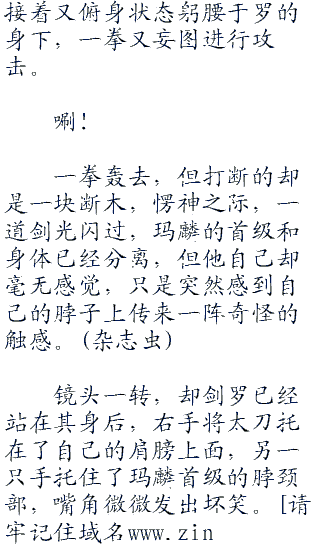 接着又俯身状态躬腰于罗的
身下，一拳又妄图进行攻
击。
唰！
一拳轰去，但打断的却
是一块断木，愣神之际，一
道剑光闪过，玛麟的首级和
身体已经分离，但他自己却
毫无感觉，只是突然感到自
己的脖子上传来一阵奇怪的
触感。(杂志虫)
镜头一转，却剑罗已经
站在其身后，右手将太刀托
在了自己的肩膀上面，另一
只手托住了玛麟首级的脖颈
部，嘴角微微发出坏笑。[请
牢记住域名www.zin